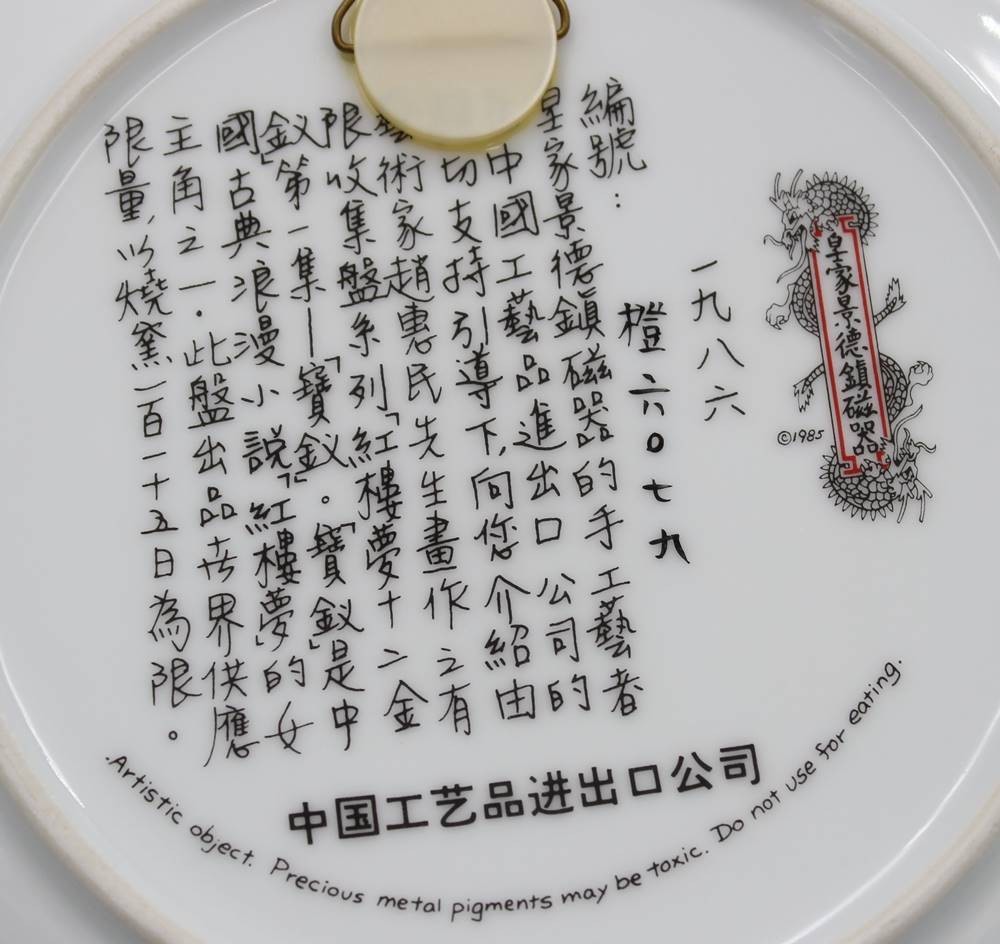 皇家景德鎮磁器
©1985
一九八六
編號：
橙六0七九
皇家景德鎮磁器的手工藝者
中國工藝品進出口公司的
切支持引導下，向您介紹由
藝術家趙惠民先生畫作之有
限收集盤系列「紅樓夢十二金
釵」第一集—「寶釵」。「寶釵」是中
國古典浪漫小說「紅樓夢」的女
主角之一。此盤出品世界供應
限量，以燒窯一百一十五日為限。
中国工艺品进出口公司
.Artistic object. Precious metal pigments may be toxic. Do not use for eating.